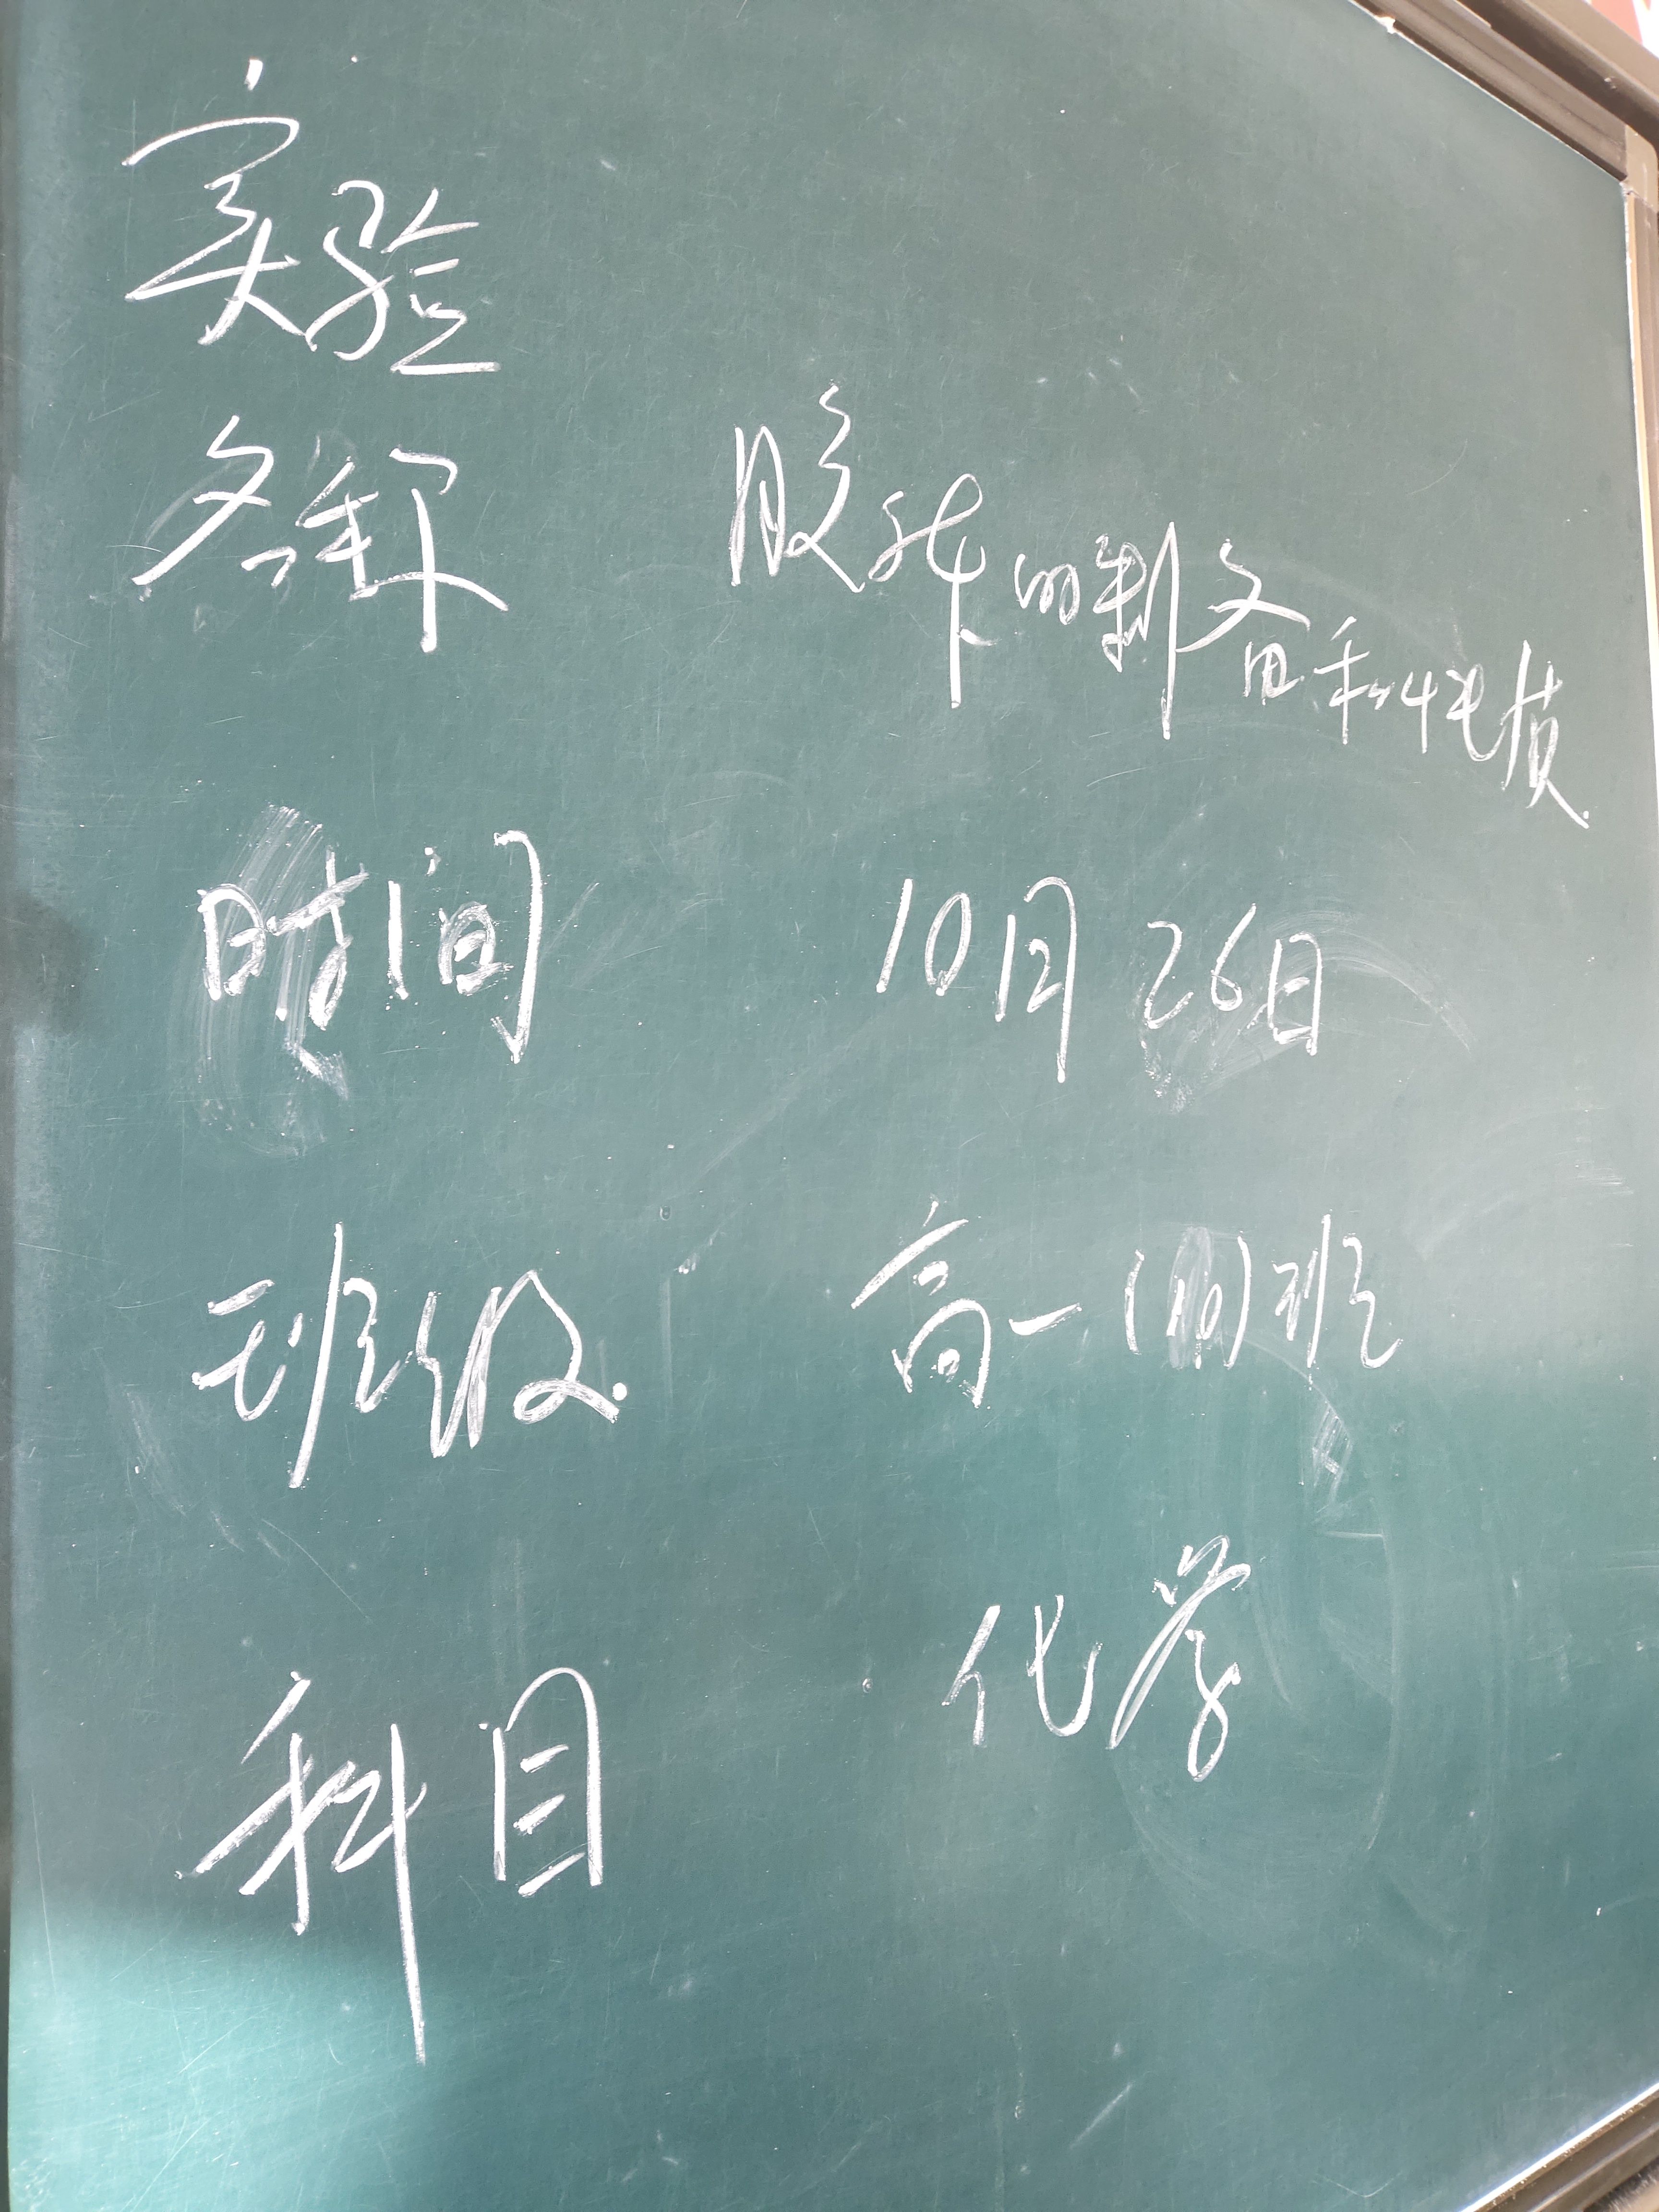 实验
名称 胶体的制备和性质
时间 10月26日
班级 高一(10)班
科目 化学